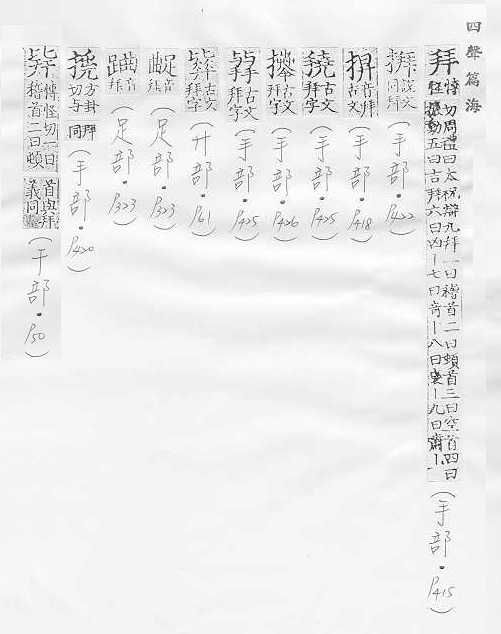 四聲篇海
拜 博怪切周禮曰太祝辯九拜一曰稽首二曰頓首三曰空首四曰振動五曰吉拜六曰凶-七曰奇-八曰褒-九曰肅-
(手部·P415)
說文同拜
(手部·P422)
音拜古文
(手部·P418)
古文拜字
(手部·P425)
古文拜字
(手部·P426)
古文拜字
(手部·P425)
古文拜字
(廾部·P61)
音拜
(足部·P323)
音拜
(足部·P323)
方卦切与拜同
(手部·P420)
博怪切一曰稽首二曰頓首與拜義同
(手部·P50)